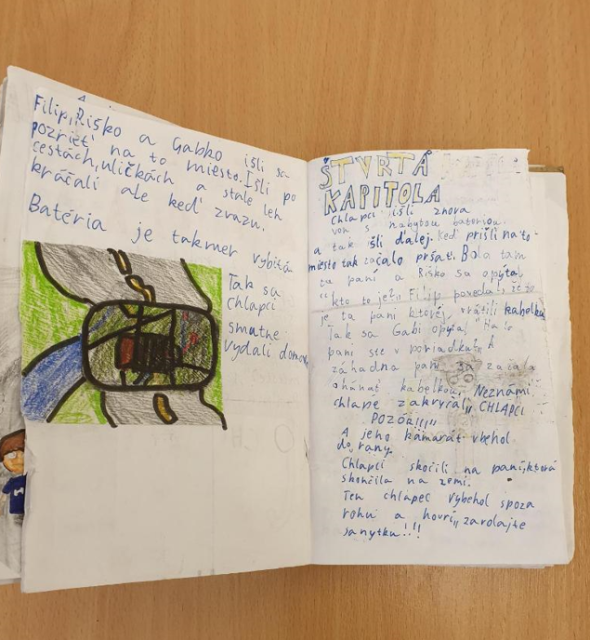 Filip, Riško a Gabko išli sa
pozrieť na to miesto. Išli po
cestách, uličkách a stale len
kráčali ale keď zrazu.
Batéria je takmer vybitá
Tak sa
chlapci
smutne
vydali domov
ŠTVRTÁ
KAPITOLA
Chlapci išli znova
von s nabytou bateriou
a tak išli ďalej. keď prišli na to
miesto tak začalo pršať. Bola tam
ta pani a Riško sa opýtal
"kto to je?" Filip povedal že to
je ta pani ktorej vrátili kabelku
Tak sa Gabi opýtal
pani ste v poriadku
záhadna pani sa začala
oháňať kabelkou. Neznámi
chlapec zakryčal,, CHLAPCI
POZOR!!!!
A jeho kamarát vbehol
do rany.
Chlapci skočili na pani, ktorá
skončila na zemi.
Ten chlapec vybehol spoza
rohu a hovrí,, zavolajte
sanytku!!!